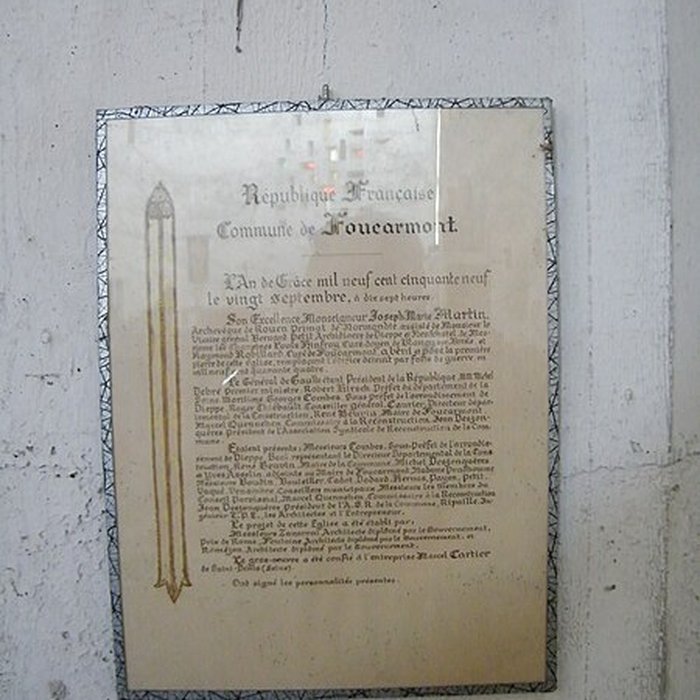 République Française
Commune de Foucarmont.
L'An de Grâce mil neuf cent cinquante neuf
le vingt septembre, à dix sept heures.
Son Excellence Monseigneur Joseph Marie Martin,
Archevêque de Rouen Primat de Normandie assisté de Monsieur le
Vicaire général Bernard Petit Archidiacre de Dieppe et Neufchâtel, de Mes-
sieurs les Chanoines Louis Curé doyen de Blangy sur Bresle, et
Raymond Robillard, Curé de Foucarmont, a béni et posé la première
pierre de cette église, remplaçant l'édifice détruit par faits de guerre en
mil neuf quarante quatre.
Le Général de Gaulle étant Président de la République, MM. Michel
Debré premier ministre, Robert Hirsch, Préfet du département de la
Seine Maritime Georges Combes, Sous-préfet de l'arrondissement de
Dieppe, Roger Thiébault Conseiller général, Caurier, Directeur dépar-
temental de la Construction, René Beuvin Maire de Foucarmont,
Marcel Quennehen, Commissaire à la Reconstruction, Jean Desjon-
quères Président de l'Association Syndicale de Reconstruction de la Com-
mune.
Étaient présents: Messieurs Combes, Sous-Préfet de l'arrondis-
sement de Dieppe, représentant le Directeur Départemental de la Cons-
truction, René Beuvin, Maire de la Commune, Michel Desjonquères
et Yves Asselin, adjoints au Maire de Foucarmont, Madame Prudhomme
Messieurs Boudin, Bouteiller, Cahot, Dodard, Hermis, Payen, Petit,
Vaqué, Conseillers municipaux, Messieurs les Membres du
Conseil Paroissial, Marcel Quennehen, Commissaire à la Reconstruction
Jean Desjonquères Président de l'A.S.R. de la Commune, Ripaille In-
génieur T.P.E., les Architectes et l'Entrepreneur.
Le projet de cette Église a été établi par:
Messieurs Architecte diplômé par le Gouvernement,
Prix de Rome, Fontaine Architecte diplômé par le Gouvernement, et
Architecte diplômé par le Gouvernement.
Le gros-oeuvre a été confié à l'entreprise Marcel Cartier
de Saint-Denis (Seine).
Ont signé les personnalités présentes.